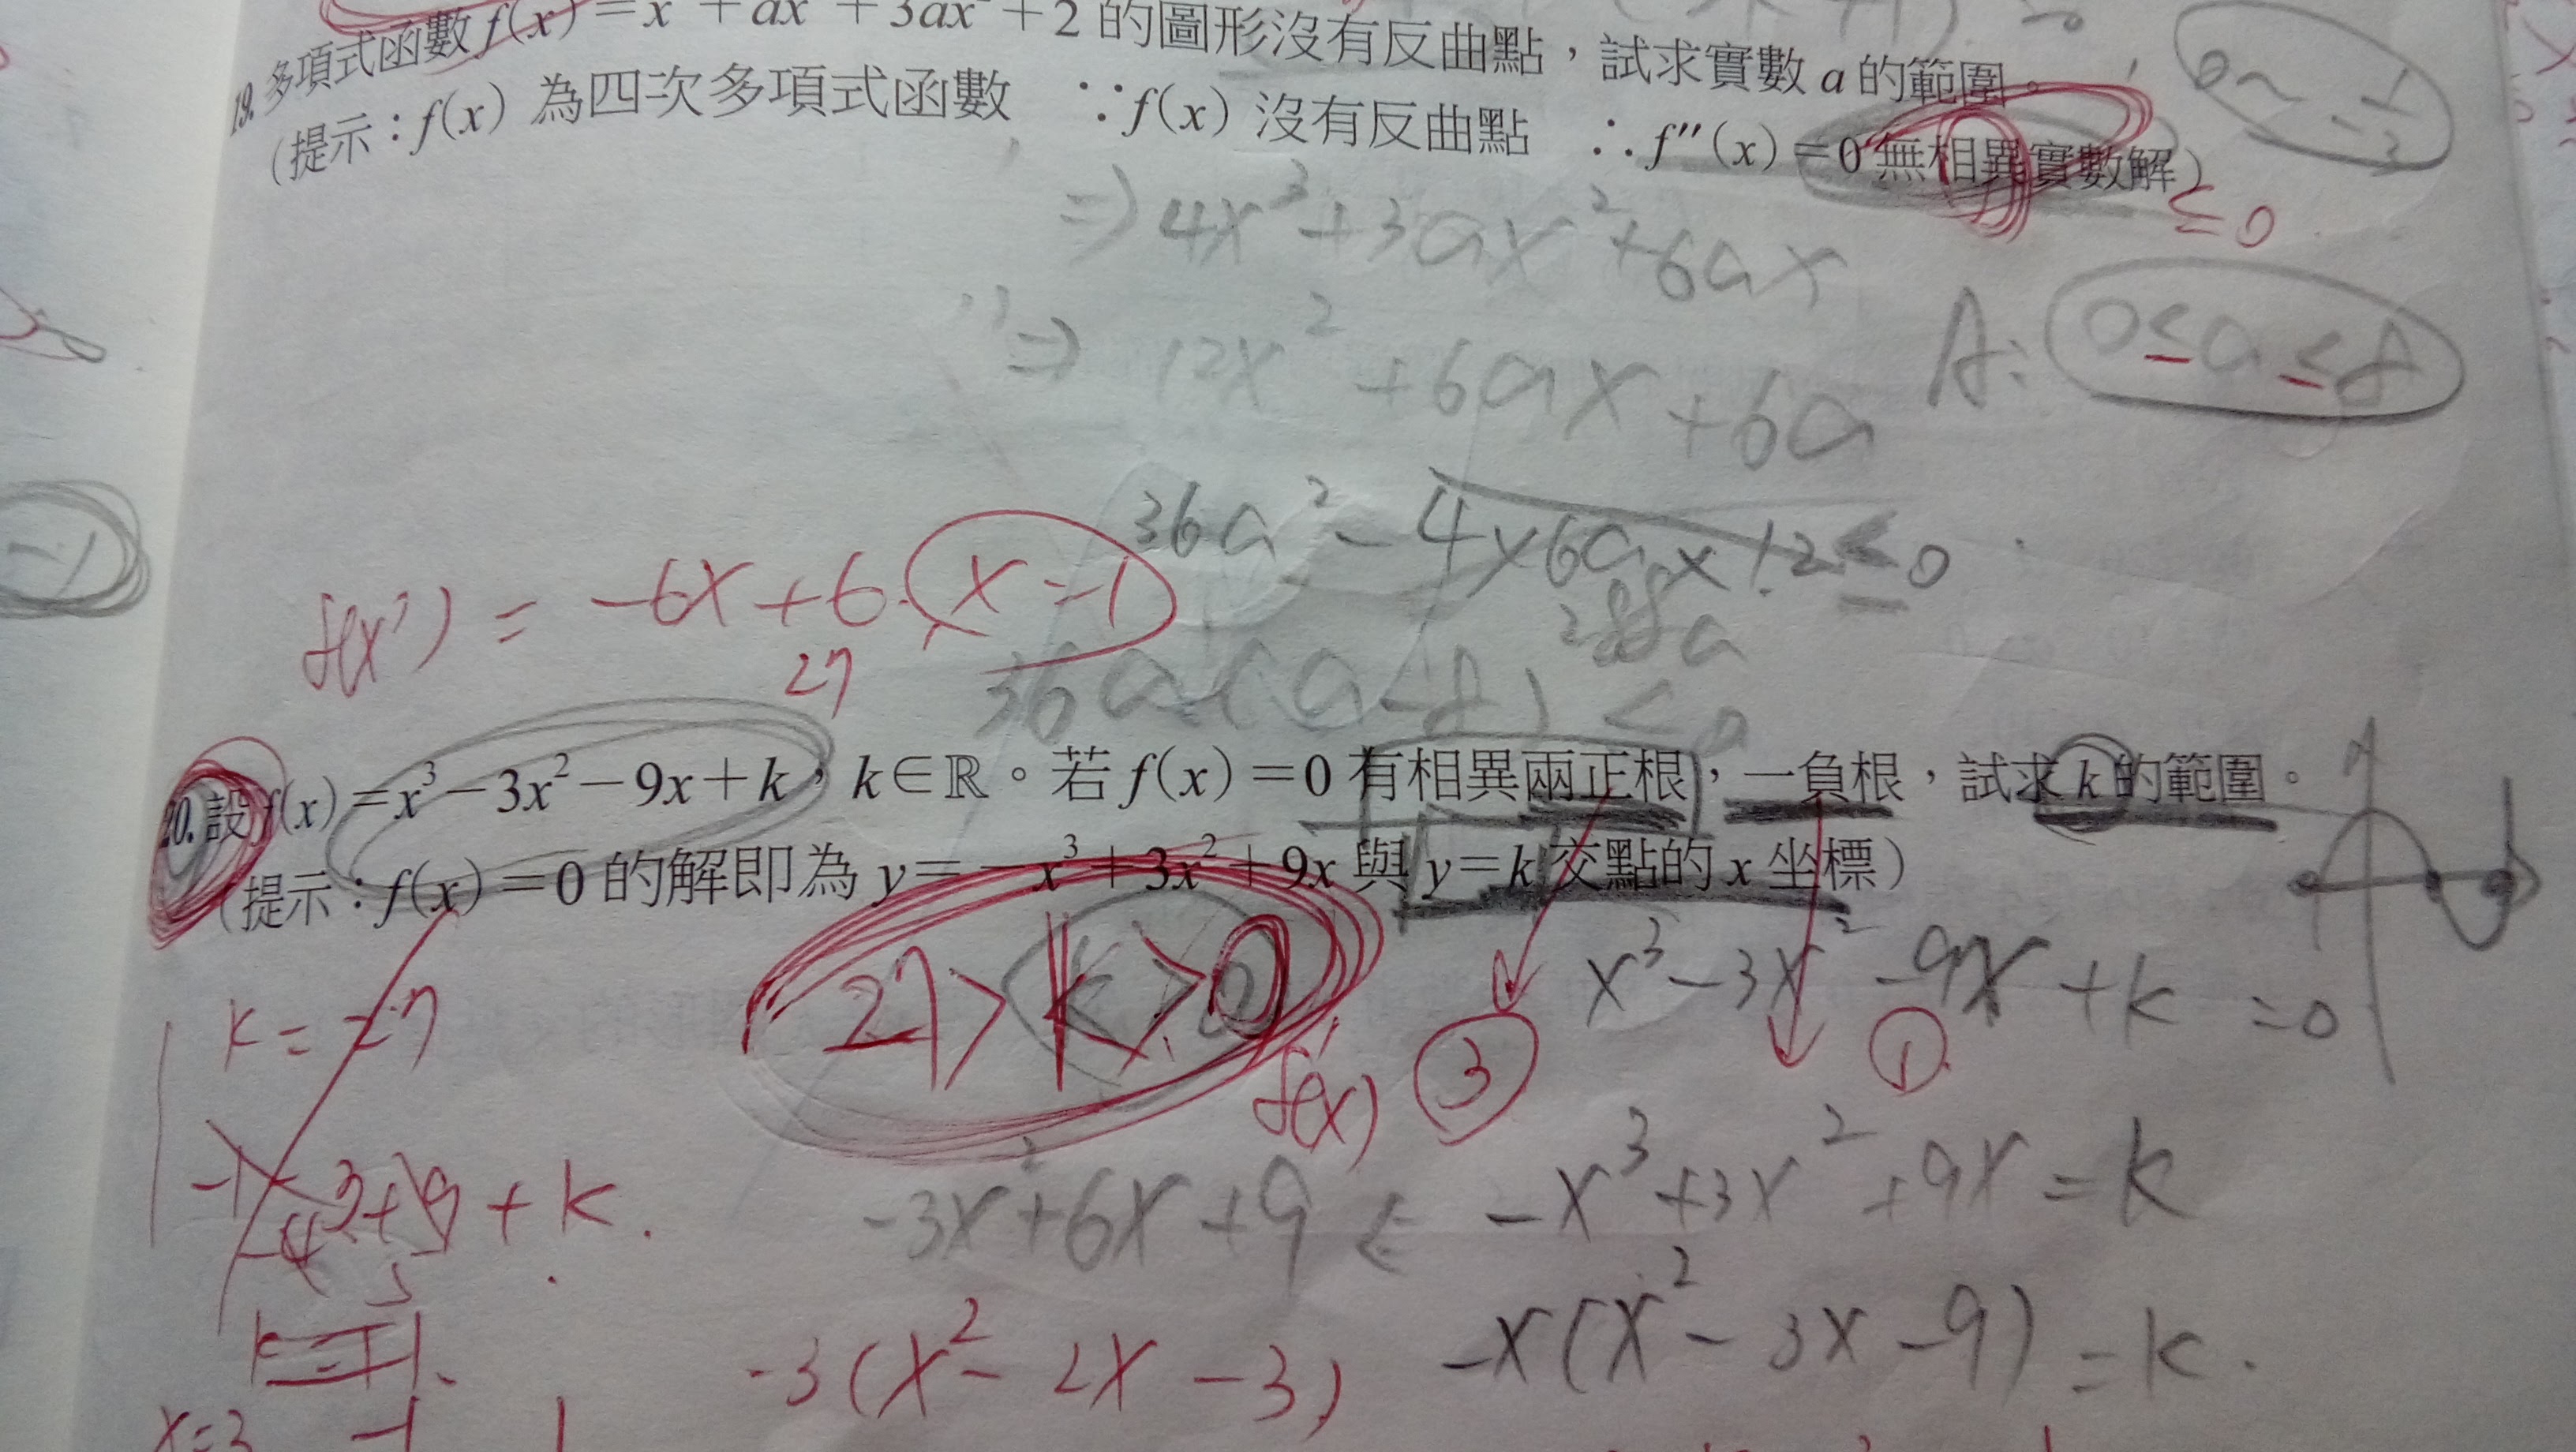 19. 多項式函數 f(x) = x + ax + 3ax² + 2 的圖形沒有反曲點，試求實數 a 的範圍。
(提示：f(x) 為四次多項式函數 ∵f(x) 沒有反曲點 ∴f″(x)=0 無相異實數解)
≤0
⇒ 4x³+3ax²+6ax
⇒ 12x²+6ax+6a
A: 0≤a≤8
36a² - 4×6a×12 ≤ 0
288a
f(x') = -6x+6 x=1
27
36a(a-8) ≤ 0
-1
20. 設 f(x)=x³-3x²-9x+k，k∈ℝ。若 f(x)=0 有相異兩正根，一負根，試求 k 的範圍。
(提示：f(x)=0 的解即為 y=-x³+3x²+9x 與 y=k 交點的 x 坐標)
27>k>0
x³-3x²-9x+k=0
③ ①
f'(x)
-3x²+6x+9 ⇐ -x³+3x²+9x=k
-3(x²-2x-3)
-x(x²-3x-9)=k.
x=3 -1